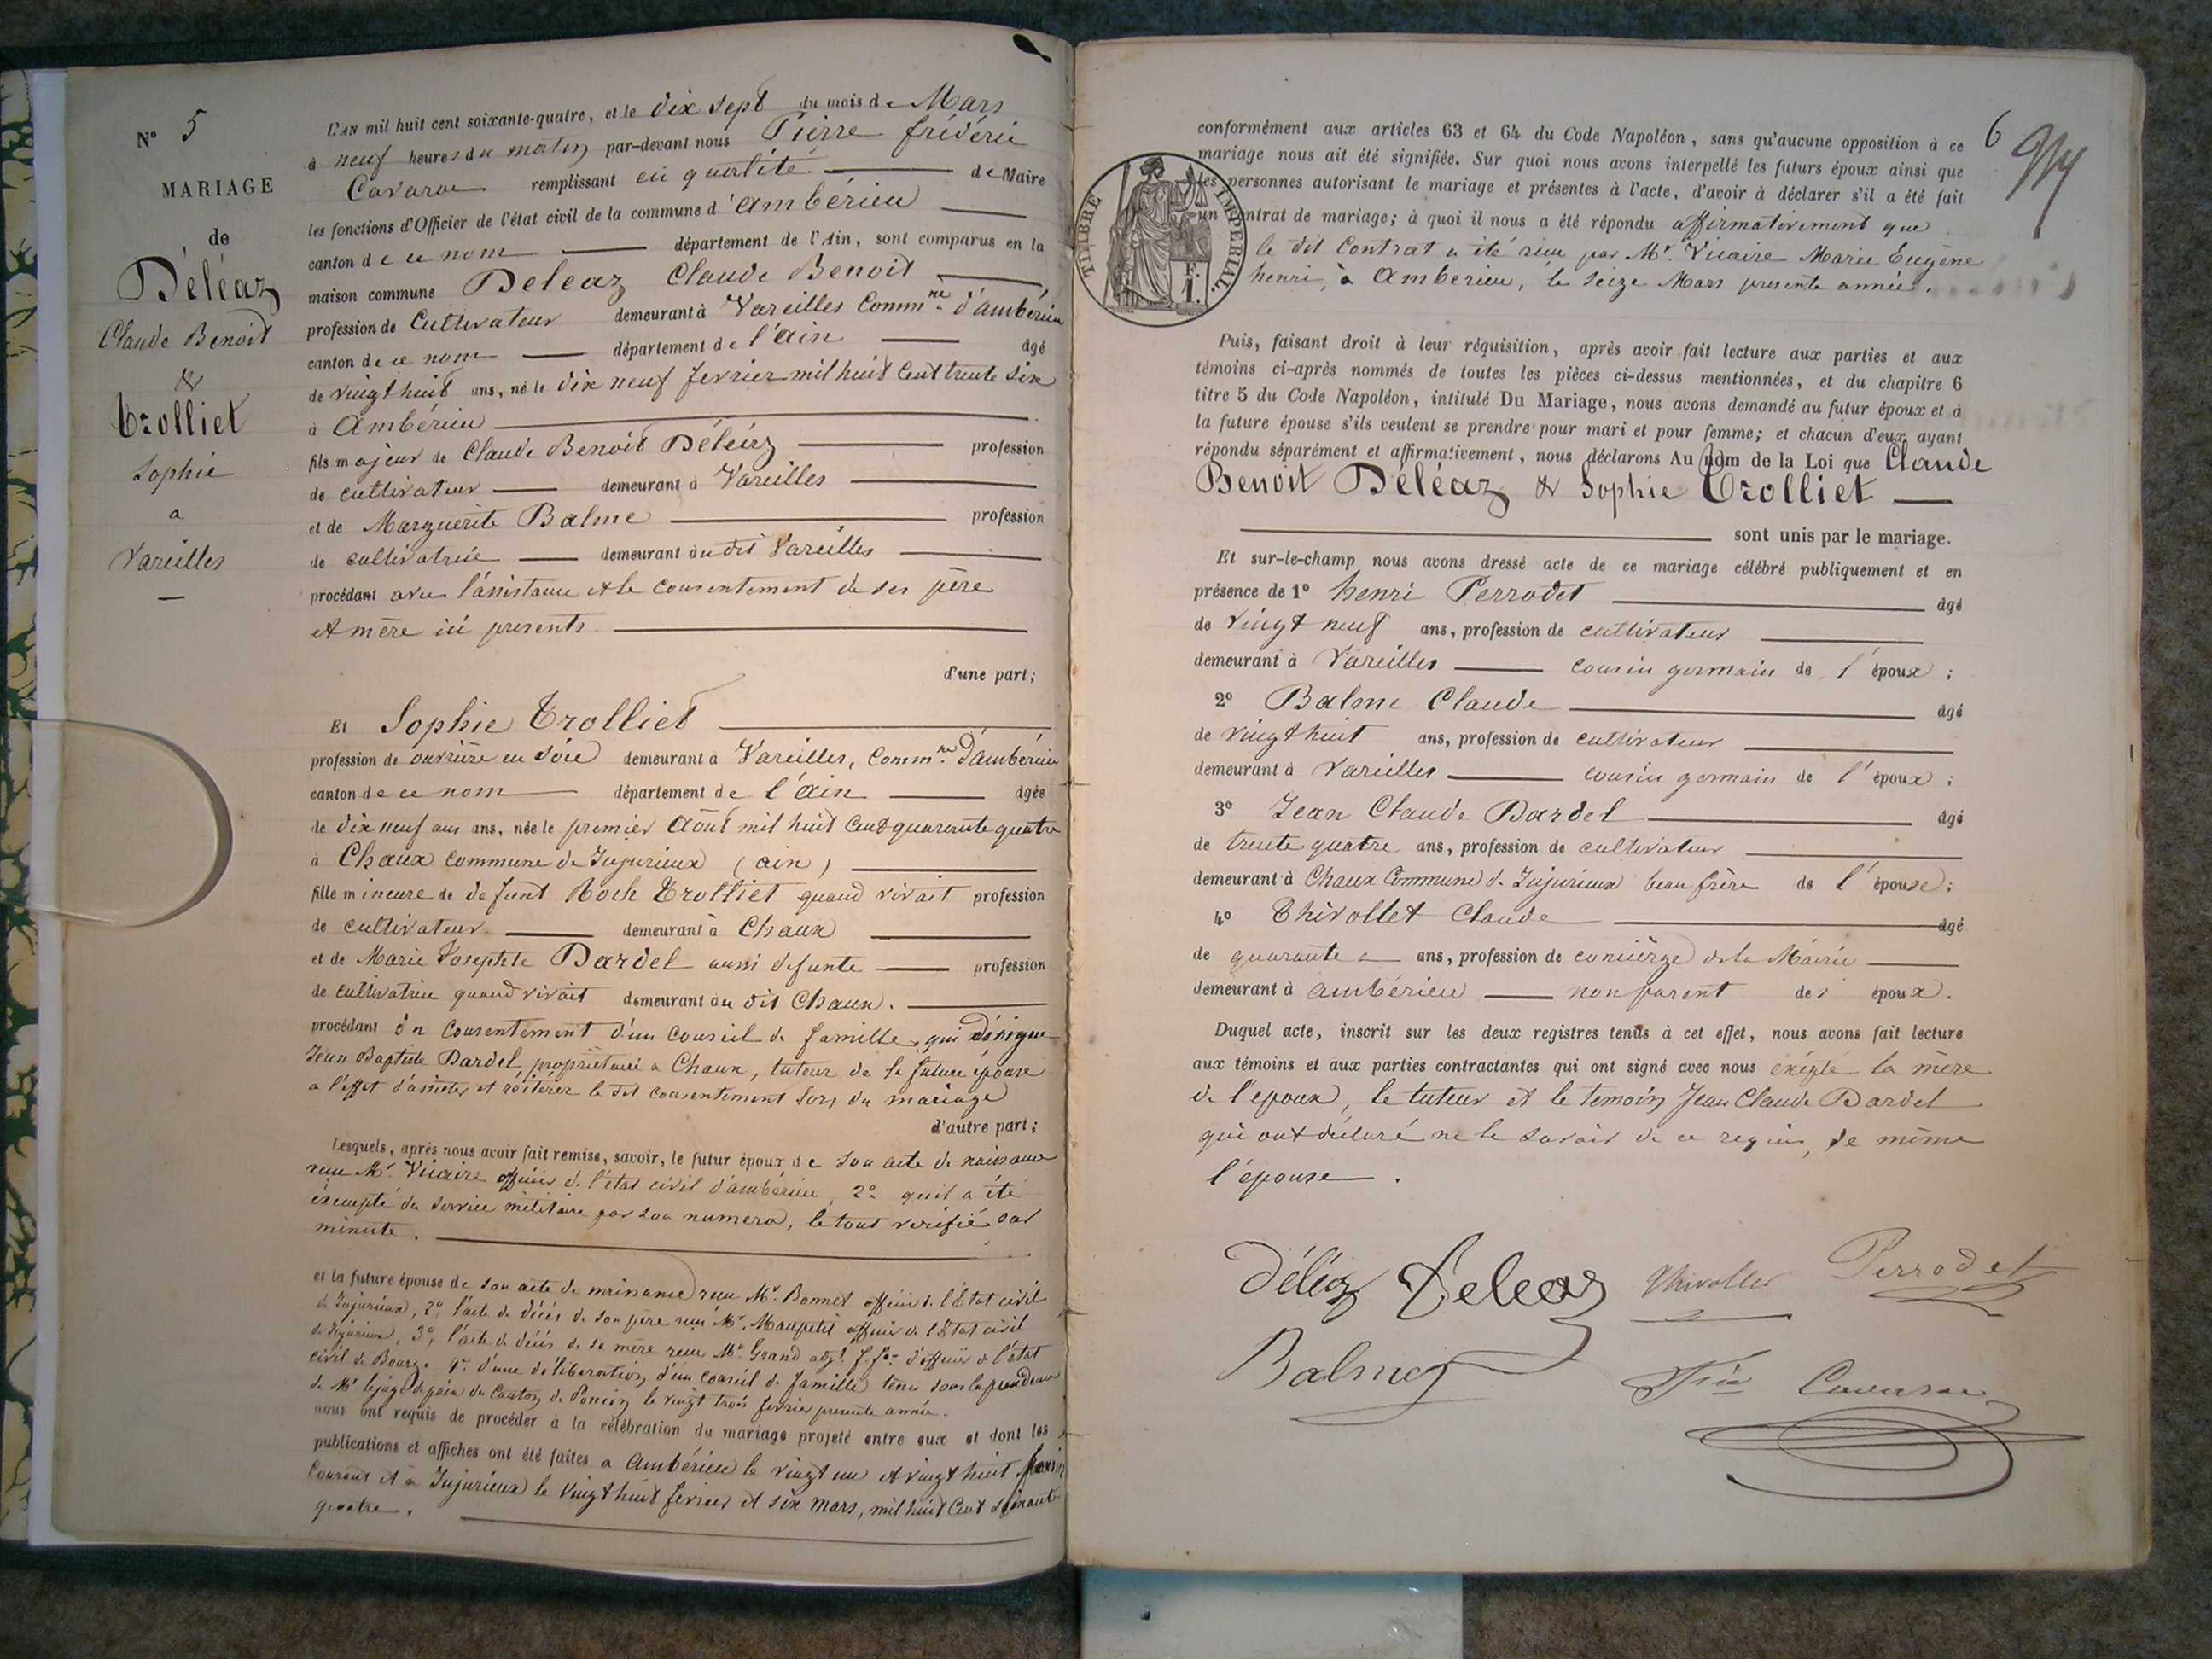 N° 5
MARIAGE
de
Déléaz
Claude Benoit
&
Trolliet
Sophie
a
Vareilles
L'AN mil huit cent soixante-quatre, et le dix sept du mois de Mars
à neuf heures du matin par-devant nous Pierre frédéric
Cavaroc remplissant en qualité de Maire
les fonctions d'Officier de l'état civil de la commune d'ambérieu
canton de ce nom département de l'Ain, sont comparus en la
maison commune Deleaz Claude Benoit
profession de Cultivateur demeurant à Vareilles Commne d'ambérieu
canton de ce nom département de l'ain âgé
de vingt huit ans, né le dix neuf fevrier mil huit Cent trente six
à Ambérieu
fils majeur de Claude Benoit Déléaz profession
de cultivateur demeurant à Vareilles
et de Marguerite Balme profession
de cultivatrice demeurant au dit Vareilles
procédant avec l'assistance et le consentement de ses père
et mère ici presents
d'une part;
Et Sophie Trolliet
profession de ouvrière en soie demeurant à Vareilles, Commne d'ambérieu
canton de ce nom département de l'ain âgée
de dix neuf ans ans, née le premier Août mil huit Cent quarante quatre
à Chaux Commune de Jujurieux (ain)
fille mineure de defunt Roch Trolliet quand vivait profession
de cultivateur demeurant à Chaux
et de Marie Josephte Dardel aussi defunte profession
de cultivatrice quand vivait demeurant au dit Chaux.
procédant du Consentement d'un Conseil de famille, qui désigne
Jean Baptiste Dardel, propriétaire a Chaux, tuteur de la future épouse
a l'effet d'assister et réitérer le dit consentement lors du mariage
d'autre part;
Lesquels, après nous avoir fait remise, savoir, le futur époux de son acte de naissance
reçu Mr. Vicaire officier de l'état civil d'ambérieu, 2° qu'il a été
éxempté du service militaire par son numero, le tout verifié sur
minute.
et la future épouse de son acte de naissance reçu Mr. Bonnet officier de l'État civil
de Jujurieux, 2° l'acte de décés de son père reçu Mr. Maupetit officier de l'État civil
de Jujurieux, 3°, l'acte de décés de sa mère reçu Mr. Grand adjt. f. fon d'officier de l'état
civil de Bourg. 4° d'une délibération d'un Conseil de famille tenu sous la présidence
de Mr le juge de paix du Canton de Poncin le vingt trois fevrier presente année.
nous ont requis de procéder à la célébration du mariage projeté entre eux et dont les
publications et affiches ont été faites a Ambérieu le vingt un et vingt huit fevrier
Courant et à Jujurieux le vingt huit fevrier et six mars, mil huit Cent soixante
quatre.
6
TIMBRE IMPERIAL.
1 F.
conformément aux articles 63 et 64 du Code Napoléon, sans qu'aucune opposition à ce
mariage nous ait été signifiée. Sur quoi nous avons interpellé les futurs époux ainsi que
les personnes autorisant le mariage et présentes à l'acte, d'avoir à déclarer s'il a été fait
un contrat de mariage; à quoi il nous a été répondu affirmativement que
le dit Contrat a été reçu par Mr. Vicaire Marie Eugène
henri, à Amberieu, le seize Mars presente année.
Puis, faisant droit à leur réquisition, après avoir fait lecture aux parties et aux
témoins ci-après nommés de toutes les pièces ci-dessus mentionnées, et du chapitre 6
titre 5 du Code Napoléon, intitulé Du Mariage, nous avons demandé au futur époux et à
la future épouse s'ils veulent se prendre pour mari et pour femme; et chacun d'eux ayant
répondu séparément et affirmativement, nous déclarons Au nom de la Loi que Claude
Benoit Déléaz & Sophie Trolliet
sont unis par le mariage.
Et sur-le-champ nous avons dressé acte de ce mariage célébré publiquement et en
présence de 1° henri Perrodet âgé
de vingt neuf ans, profession de cultivateur
demeurant à Vareilles cousin germain de l'époux;
2° Balme Claude âgé
de vingt huit ans, profession de cultivateur
demeurant à Vareilles cousin germain de l'époux;
3° Jean Claude Dardel âgé
de trente quatre ans, profession de cultivateur
demeurant à Chaux Commune de Jujurieux beau frère de l'épouse;
4° Thivollet Claude âgé
de quarante ans, profession de concièrge de la Mairie
demeurant à ambérieu non parent des époux.
Duquel acte, inscrit sur les deux registres tenus à cet effet, nous avons fait lecture
aux témoins et aux parties contractantes qui ont signé avec nous éxépté la mère
de l'epoux, le tuteur et le temoin Jean Claude Dardel
qui ont déclaré ne le savoir de ce requis, de même
l'épouse.
Déléaz Deleaz Thivollet Perrodet
Balme